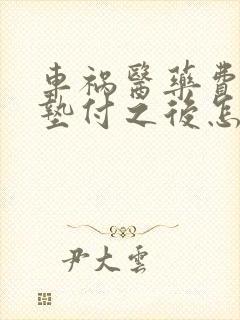 車禍醫藥費
墊付之後怎
尹大雲